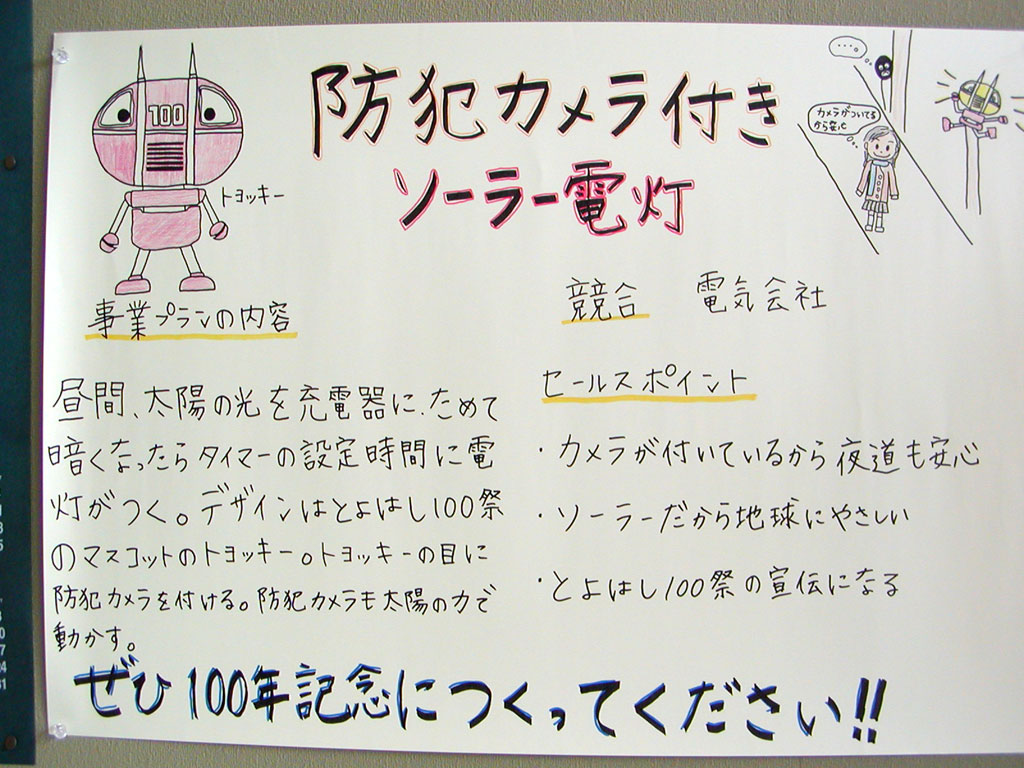 防犯カメラ付き
ソーラー電灯
100
トヨッキー
....
カメラがついてる
から安心
事業プランの内容
昼間、太陽の光を充電器に、ためて
暗くなったらタイマーの設定時間に電
灯がつく。デザインはとよはし100祭
のマスコットのトヨッキー。トヨッキーの目に
防犯カメラを付ける。防犯カメラも太陽の力で
動かす。
競合 電気会社
セールスポイント
・カメラが付いているから夜道も安心
・ソーラーだから地球にやさしい
・とよはし100祭の宣伝になる
ぜひ100年記念につくってください!!